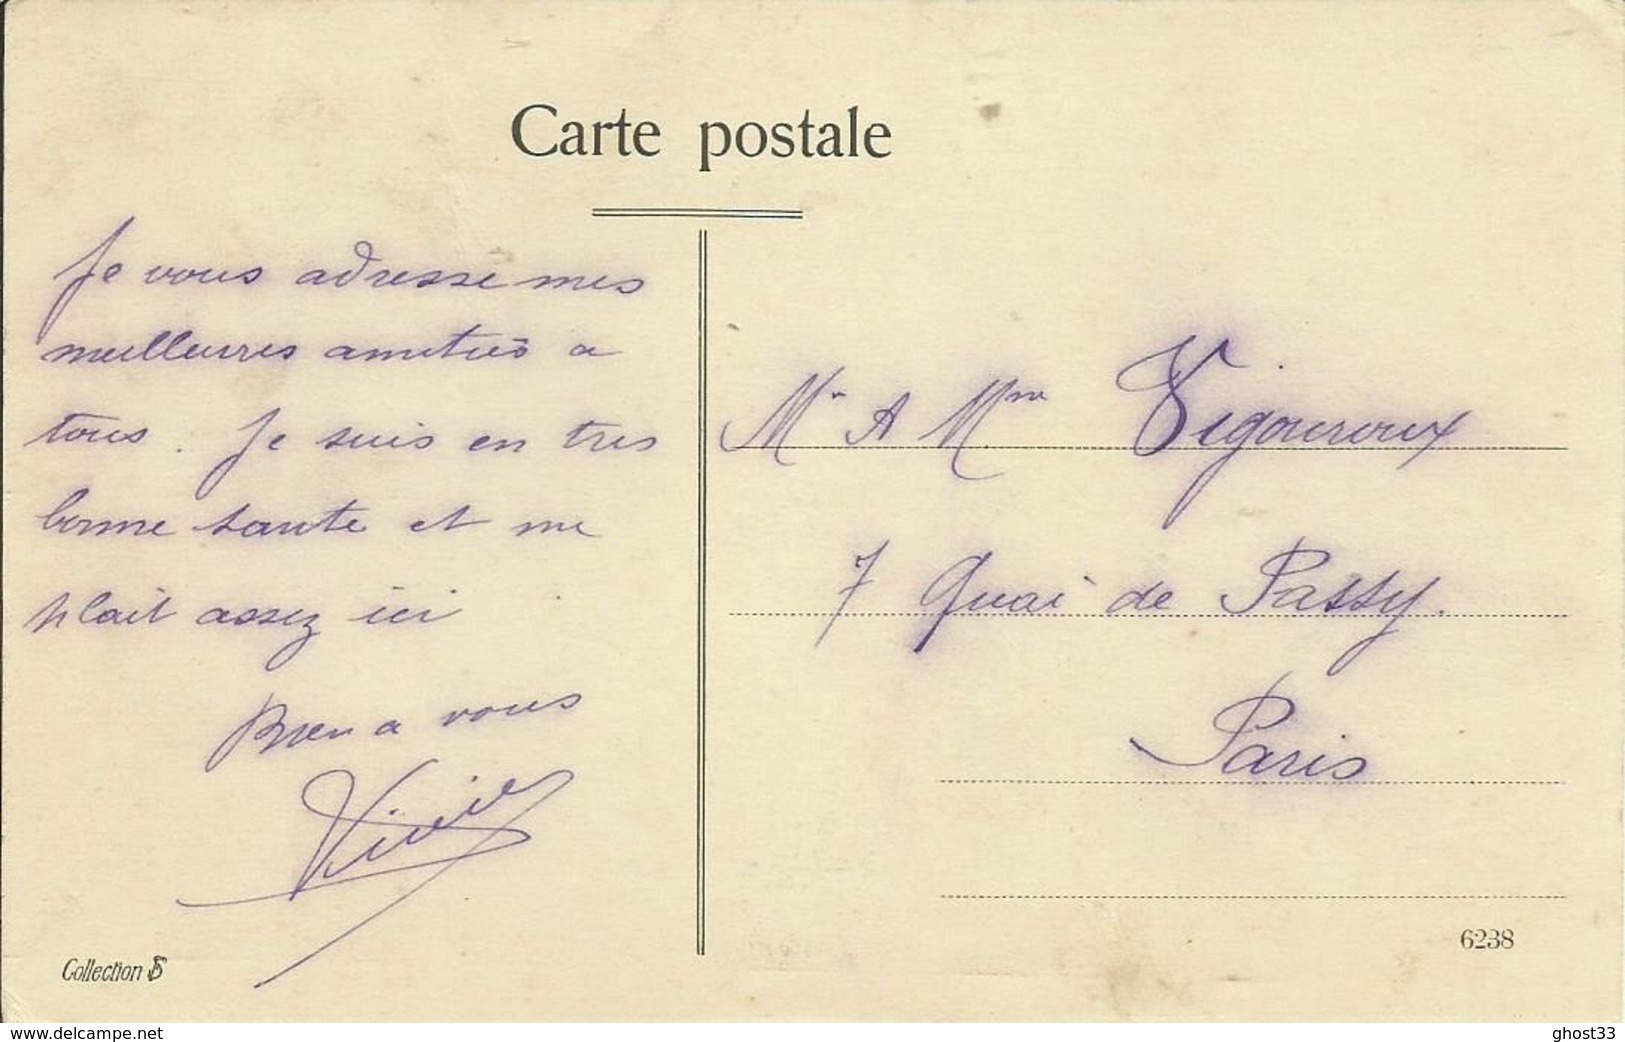 Carte postale
Je vous adresse mes
meilleures amitiés a
tous. Je suis en tres
bonne sante et me
plait assez ici
Bien a vous
Mr & Mme Vigouroux
7 Quai de Passy.
Paris
6238
Collection
www.delcampe.net
ghost33